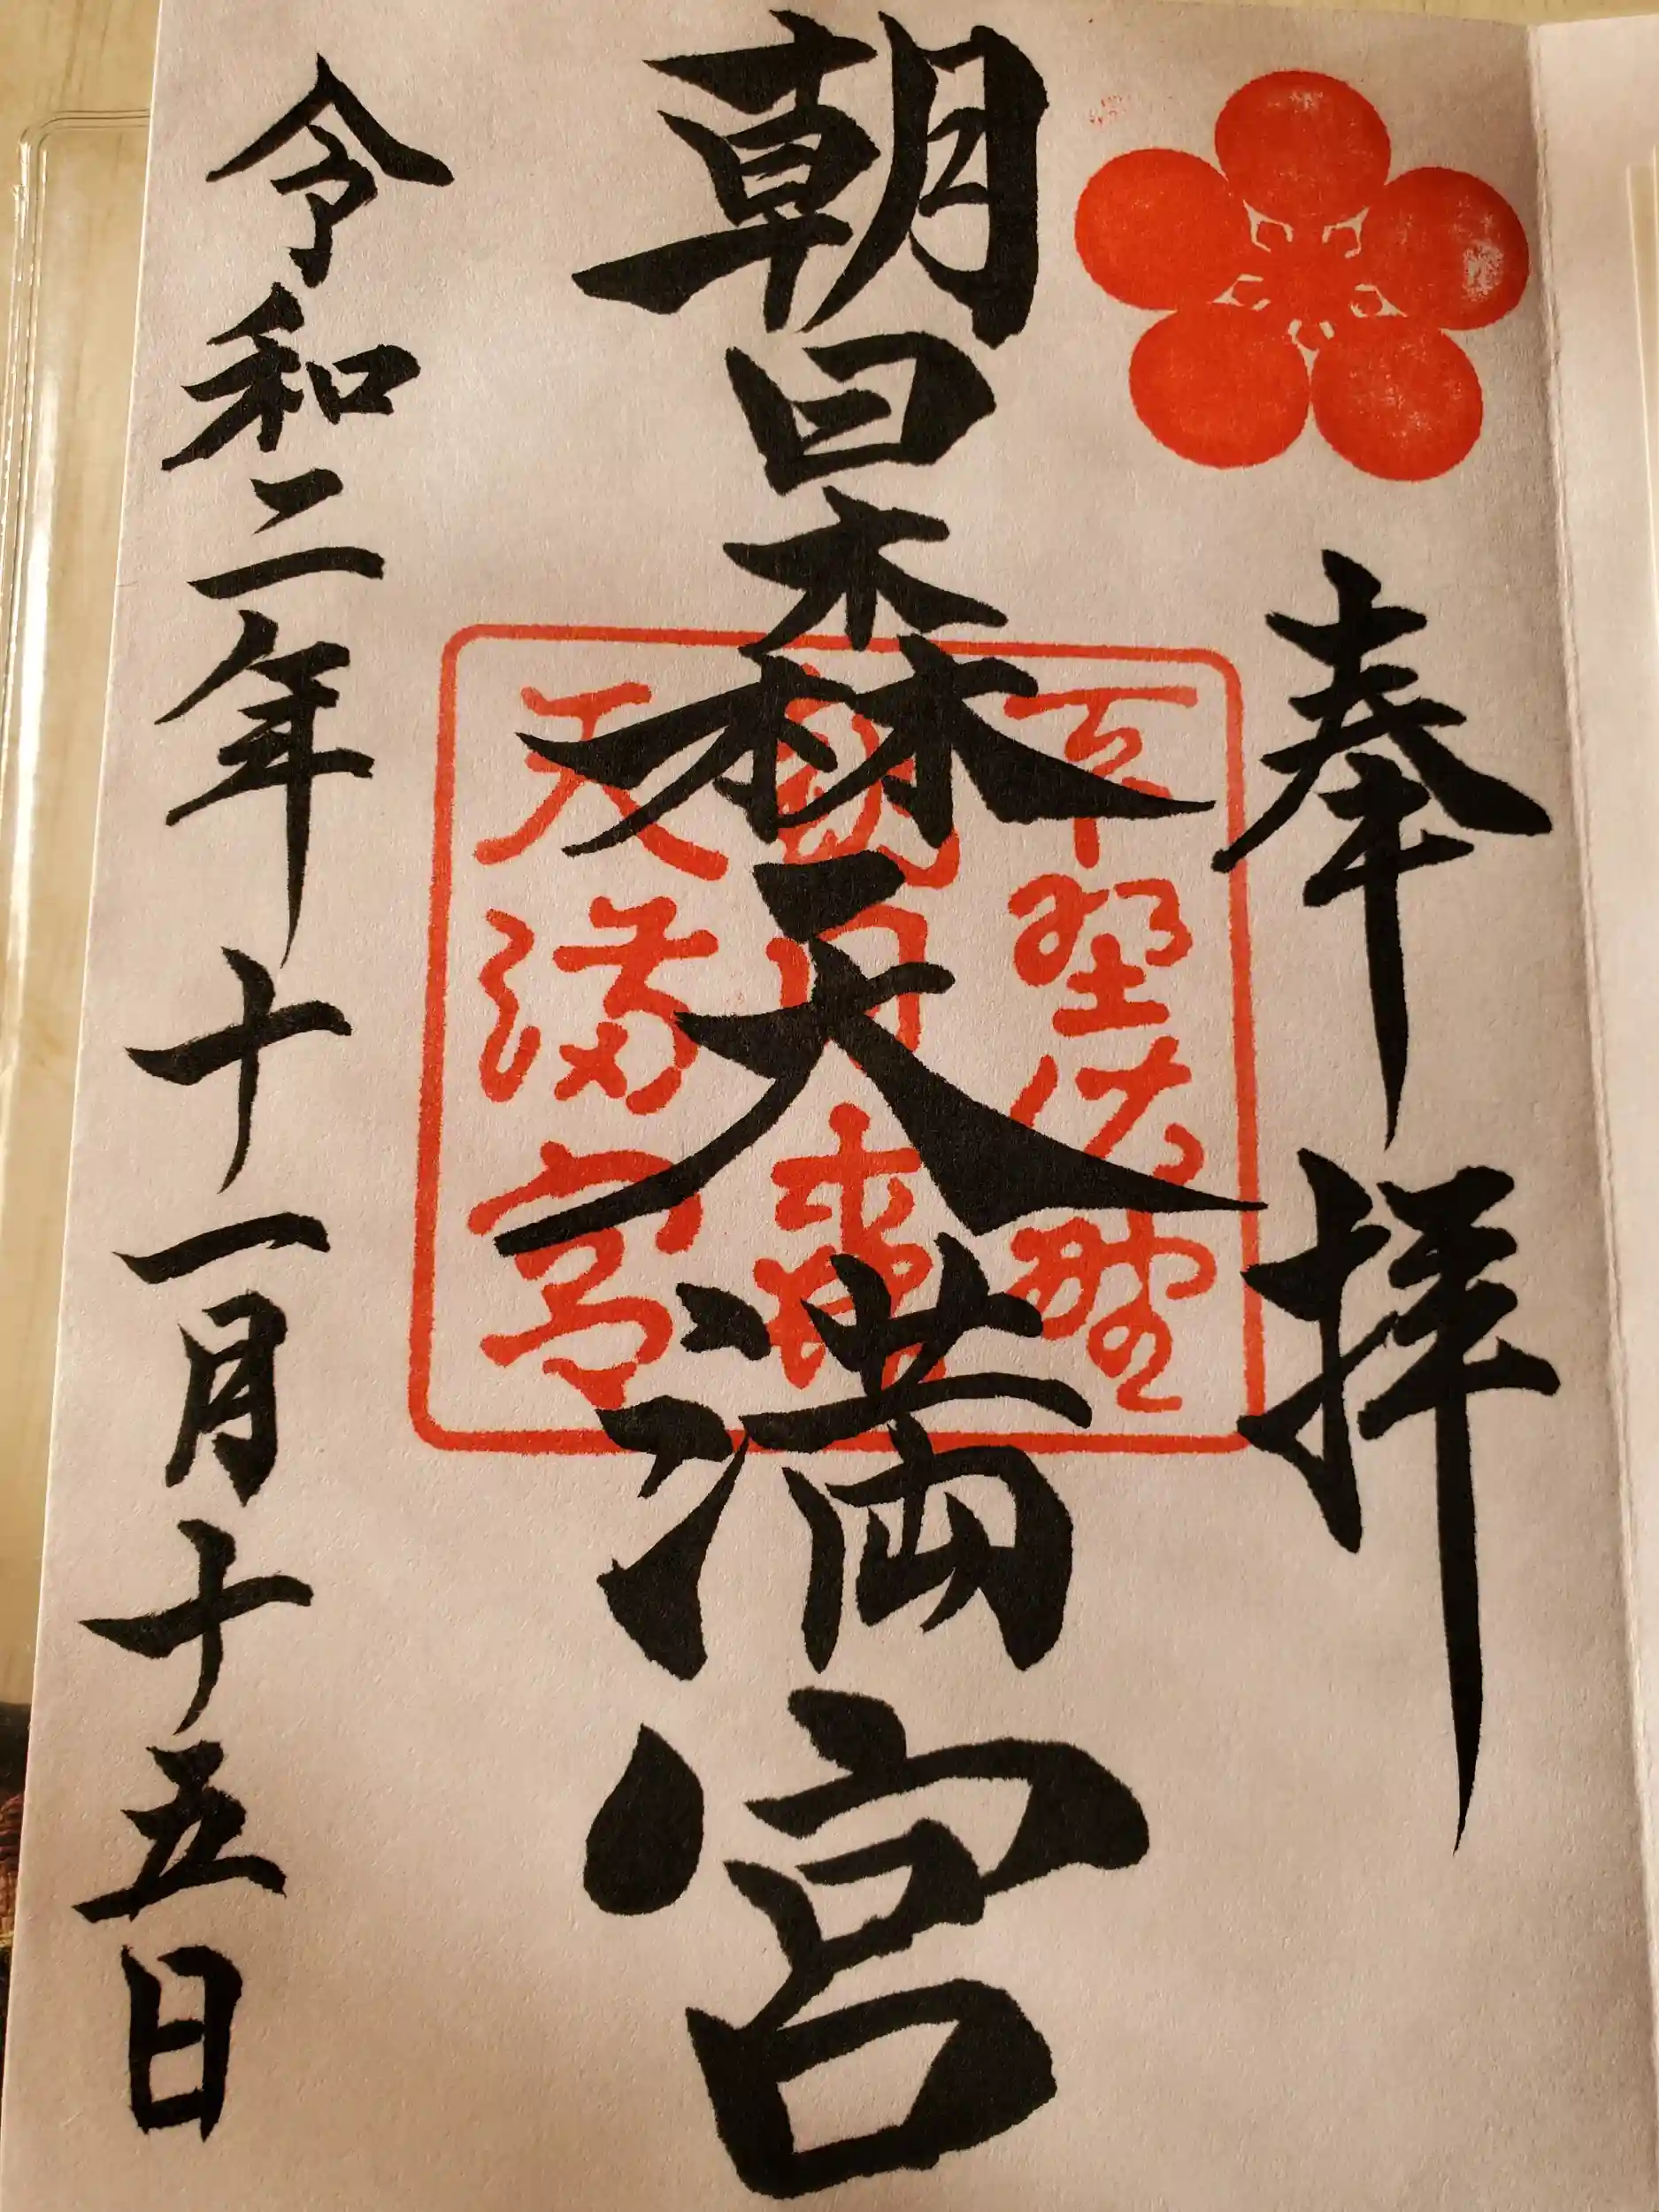 奉拝
朝日森天満宮
下野佐野
朝日森
天満宮
令和二年十一月十五日